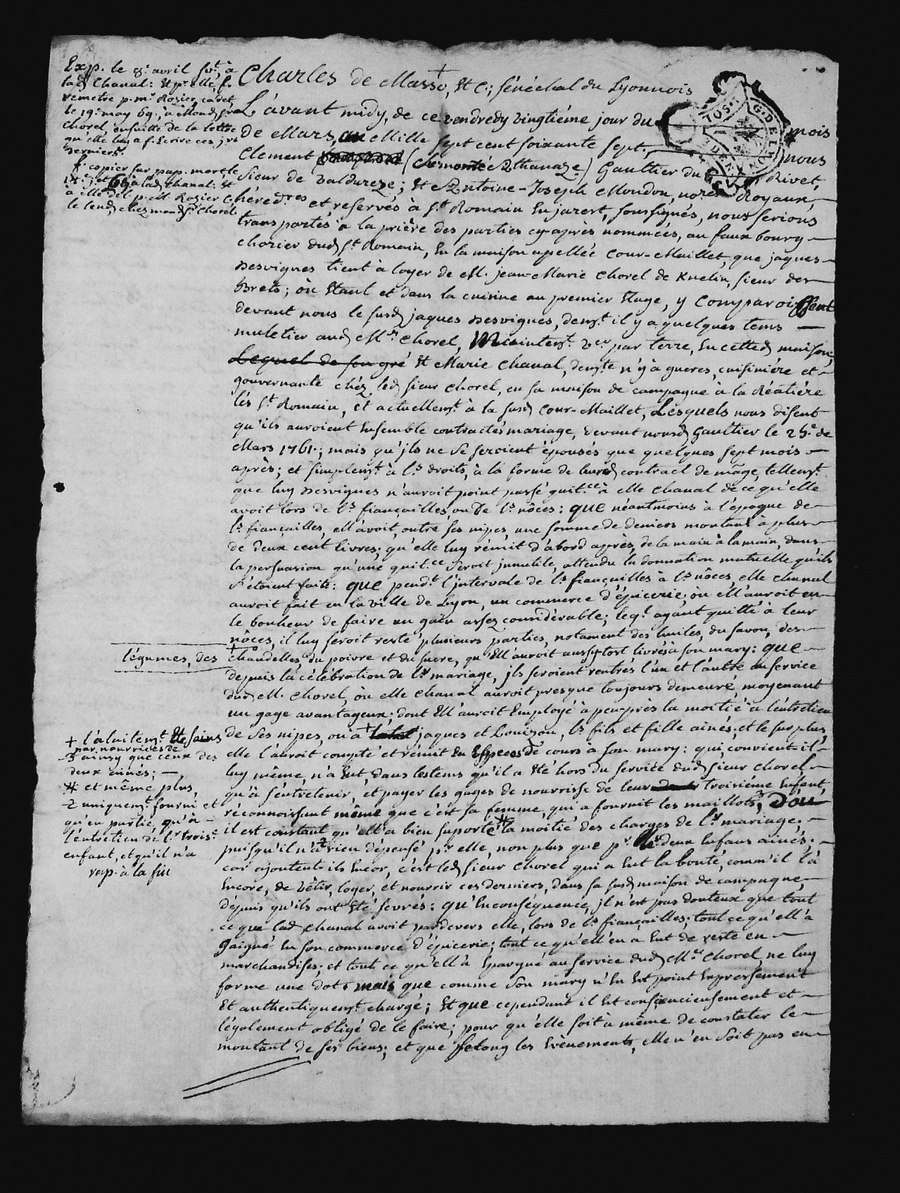 Exp. le 8e. avril svt. à
lad. Chanal: Et p. elle f.
remetre p. mr. Rozier cadet
le 19e. may 69, à
Chorel, ensuitte de la lettre
qu'elle luy a f. Ecrire ces jrs
derniers.
f. copier sur pap. mort le
à lad. Chanal: et
à elle del. p. M. Rozier
le lend. chez mond. sr. Chorel
Charles de Masso, Et C; sénéchal du Lyonnois
L'avant midy, de ce vendredy vingtième jour du mois
de Mars, Mille sept cent soixante sept, nous
Clement Gaultier du Rivet,
sieur de Valdureze; Et Antoine-Joseph Mondon, nores. Royaux
héredres. et reservés à St. Romain En jarest, soussignés, nous serions
transportés à la prière des parties cy-après nommées, au faux bourg
chorier dud. St. Romain, En la maison apellée Cour-Maillet, que jaques
Desvignes tient à loyer de M. jean-Marie Chorel de Knelin, sieur des
Brets; où Etant et dans la cuisine au premier Etage, y comparoissent
devant nous le susd. jaques Desvignes, demt. il y a quelques tems
muletier aud. Mr. Chorel, Maintent. par terre, En cetted. maison,
Lequel de son gré Et Marie Chanal, demte n'y a gueres, cuisinière et
gouvernante chéz led. sieur Chorel, en sa maison de campagne à la Réatière
lés St. Romain, et actuellemt. à la susd. Cour-Maillet, Lesquels nous disent
qu'ils auroient Ensemble contractés mariage, devant nousd. Gaultier le 25e. de
Mars 1761; mais qu'ils ne se seroient épousés que quelques sept mois
après; et simplemt. à ls. droits, à la forme de leurd. contract de mage, tellemt.
que luy Desvignes n'auroit point passé quitce. à elle Chanal de ce qu'elle
avoit lors de ls. fiançailles ou de ls. nôces: que néantmoins à l'époque de
ls. fiançailles, ell'avoit, outre ses nipes, une somme de deniers montant à plus
de deux cent livres; qu'elle luy remit d'abord après, de la main à la main, dans
la persuasion qu'une quitce. seroit innutile, attendu la donnation mutuelle qu'ils
s'étoient faite: que pendt. l'intervale de ls. fiançailles à ls. nôces, elle Chanal
auroit fait en la ville de Lyon, un commerce d'épicerie; où ell'auroit eu
le bonheur de faire un gain assez considérable; leql. ayant quitté à leur
noces, il luy seroit resté plusieurs parties, notament des huiles, du savon, des
légumes, des
chandelles, du poivre et du sucre, qu'Ell'auroit aussytost livrés à son mary: que
depuis la célébration de lr. mariage, ils seroient rentrés l'un et l'autre au service
dud. M. Chorel, où elle Chanal auroit presque toujours demeuré, moyenant
un gage avantageux: dont Ell'auroit Employé à peu près la moitié à l'entretien
de ses nipes, ou à jaques et Louizon, ls. fils et fille ainés; et le surplus
elle l'auroit compté et rémit En Espèces de cours à son mary: qui convient il
luy même, n'a Eut, dans les tems qu'il a été hors du service dud. sieur Chorel
qu'à s'entretenir, et payer les gages de nourrisse de leur troisième Enfant,
réconnoissant même que c'est sa femme, qui a fournit les maillots; D'ou
il est constant qu'ell'a bien suporté la moitié des charges de lr. mariage,
puisqu'il n'a rien dépensé pr. elle, non plus que pr. les deux Enfans ainés:
car ajoutent ils Encor, c'est led. sieur Chorel qui a Eut la bonté, comm'il l'a
Encore, de vêtir, loger, et nourrir ces derniers, dans sa susd. maison de campagne,
depuis qu'ils ont été sévrés: qu'Enconséquence, il n'est pas douteux que tout
ce que lad. Chanal avoit pardevers elle, lors de ls. fiançailles; tout ce qu'ell'à
Gaigné En son commerce d'épicerie; tout ce qu'ell'en a Eut de reste en
marchandises; et tout ce qu'ell'à Epargné au service dud. Mr. Chorel, ne luy
forme une dot: mais que comme son mary n'En Est point Expressement
Et authentiquemt. chargé; Et que cependant il Est consciencieusement et
légalement obligé de le faire; pour qu'elle soit à même de constater le
montant de ses biens; et que selong les Evènements, elle n'en soit pas en
+ l'alaitemt. Et sains
par nourrices de
ainsy que ceux des
deux ainés;
# et même plus
uniquemt. fourni et
qu'en partie, qu'à
l'entretien de lr. troise.
enfant, et qu'il n'a
rep. à la fin